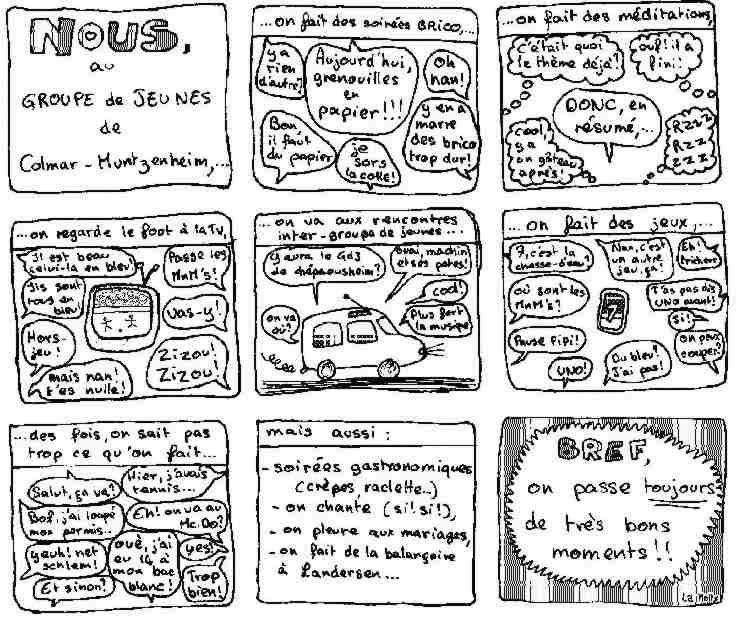 NOUS,
au
GROUPE de JEUNES
de
Colmar - Muntzenheim,...
...on fait des soirées BRICO,...
y a
rien
d'autre?
Aujourd'hui,
grenouilles
en
papier!!!
Oh
nan!
Bon,
il faut
du papier
je
sors
la colle!
y en a
marre
des brico
trop dur!
...on fait des méditations,
c'était quoi
le thème déjà?
ouf! il a
fini!
DONC, en
résumé,...
cool,
y a
un gâteau
après!
RZZZ
RZZ
ZZZ
...on regarde le foot à la TV,
Il est beau
celui-là en bleu!
Passe les
MnM's!
Ils sont
tous en
bleu!
Vas-y!
Hors-
jeu!
Zizou!
Zizou!
mais nan!
t'es nulle!
...on va aux rencontres
inter-groupe de jeunes...
Y aura le GdJ
de
ouai, machin
et ses potes!
cool!
on va
où?
Plus fort
la musique
...on fait des jeux,...
7, c'est la
chasse-d'eau?
Nan, c'est
un autre
jeu, ça!
Eh!
tricheur
où sont les
MnM's?
7
T'as pas dis
UNO avant!
Si!
Pause Pipi!
UNO!
Du bleu?
J'ai pas!
On peut
couper?
...des fois, on sait pas
trop ce qu'on fait...
Salut, ça va?
Hier, j'avais
tennis...
Bof, j'ai loupé
mon permis...
Eh! on va au
Mc.Do?
yeuh! net
schlem!
ouè, j'ai
eu 14 à
mon bac
blanc!
yes!
Et sinon?
Trop
bien!
mais aussi:
- soirées gastronomiques
(crêpes, raclette..)
- on chante (si! si!),
- on pleure aux mariages,
- on fait de la balançoire
à Landersen...
BREF,
on passe toujours
de très bons
moments!!